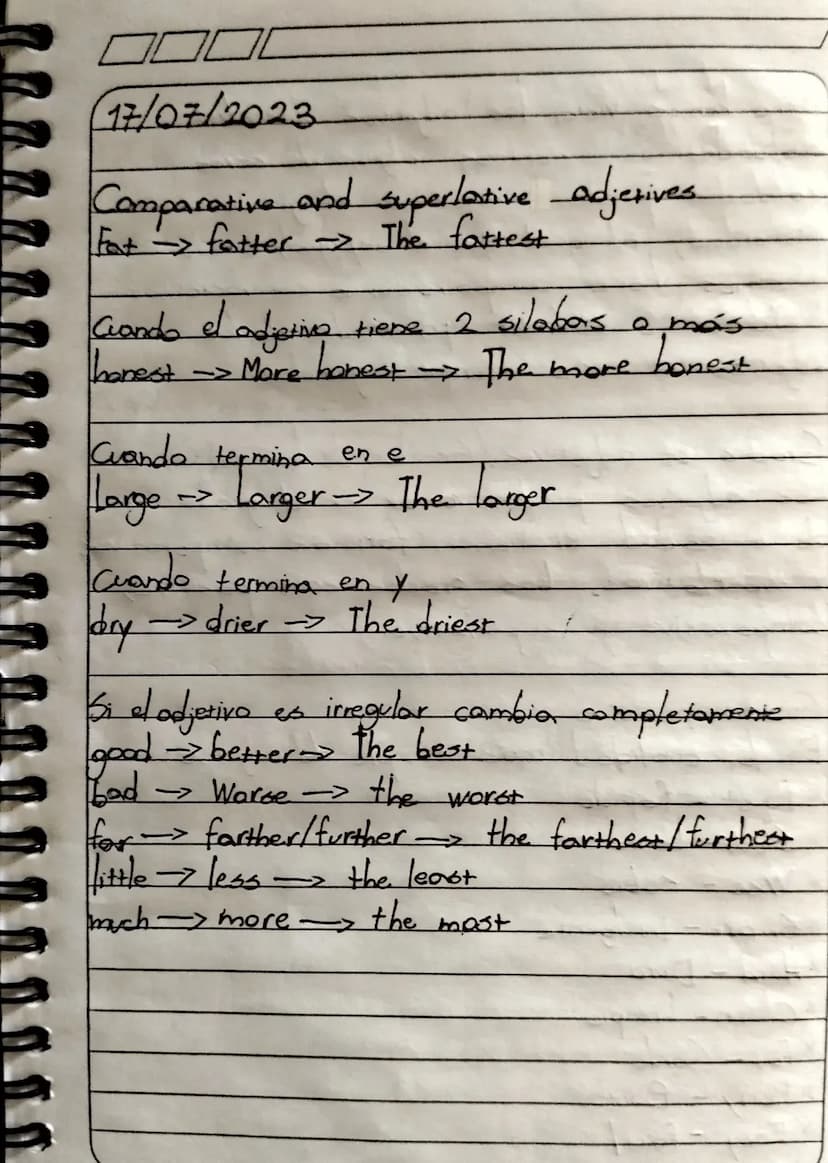 17/07/2023
Comparative and superlative adjetives
Fat -> fatter -> The fattest
Cuando el adjetivo tiene 2 silabas o más
honest -> More honest -> The more honest
Cuando termina en e
Large -> Larger -> The larger
Cuando termina en y
dry -> drier -> The driest
Si el adjetivo es irregular cambia completamente
good -> better -> The best
bad -> Worse -> the worst
far -> farther/further -> the farthest/furthest
little -> less -> the least
much -> more -> the most